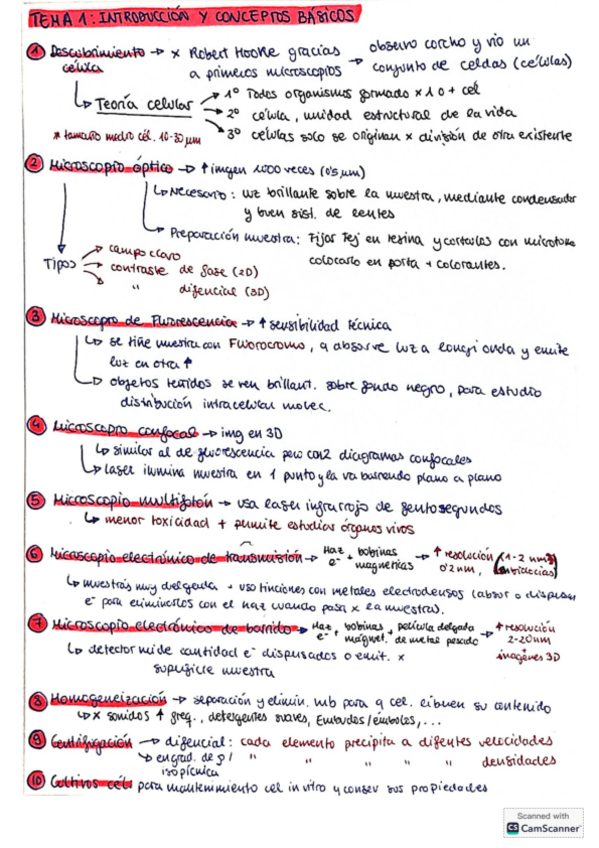 TEMA 1: INTRODUCCIÓN Y CONCEPTOS BÁSICOS
① Descubrimiento → x Robert Hooke gracias → observó corcho y vio un
célula a primeros microscopios conjunto de celdas (células)
↳ Teoría celular → 1º Todos organismos formado x 1 o + cel
→ 2º célula, unidad estructural de la vida
* tamaño medio cél. 10-30 μm → 3º células solo se originan x división de otra existente
② Microscopio óptico → ↑ imgen 1000 veces (0'5 μm)
↳ Necesario: luz brillante sobre la muestra, mediante condensador
y buen sist. de lentes
↳ Preparación muestra: Fijar Tej en resina y cortarlas con microtomo
colocarlo en porta + colorantes.
Tipos → campo claro
→ contraste de fase (2D)
→ " difencial (3D)
③ Microscopio de Fluorescencia → ↑ sensibilidad técnica
↳ se tiñe muestra con Fluorocromo, q absorve luz a longi onda y emite
luz en otra ↑
→ objetos teñidos se ven brillant. sobre fondo negro, para estudio
distribución intracelular molec.
④ Microscopio confocal → img en 3D
↳ similar al de fluorescencia pero con 2 diagramas confocales
↳ laser ilumina muestra en 1 punto y la va barrendo plano a plano
⑤ Microscopio multifotón → usa laser infrarrojo de femtosegundos
↳ menor toxicidad + pumite estudiar órganos vivos
⑥ Microscopio electrónico de transmisión → Haz e⁻ + bobinas magnéticas → ↑ resolución (1-2 nm
0'2 nm,
↳ muestras muy delgada + uso tinciones con metales electrodensos (absor o dispersan
e⁻ para eliminarlos con el haz cuando pasa x la muestra).
⑦ Microscopio electrónico de barrido → Haz e⁻ + bobinas magnet. + película delgada de metal pesado → ↑ resolución
2-20nm
imagenes 3D
↳ detector mide cantidad e⁻ dispersados o emit. x
superficie muestra
⑧ Homogeneización → separación y elimin. mb para q cel. eibuen su contenido
↳ x sonidos ↑ freq., detergentes suaves, Embudos/émbolos,...
⑨ Centrifugación → difencial: cada elemento precipita a difentes velocidades
↳ en grad. de ρ/ " " " " densidades
isopícnica
⑩ Cultivos cél: para mantenimiento cel in vitro y conserv sus propiedades
Scanned with
CS CamScanner